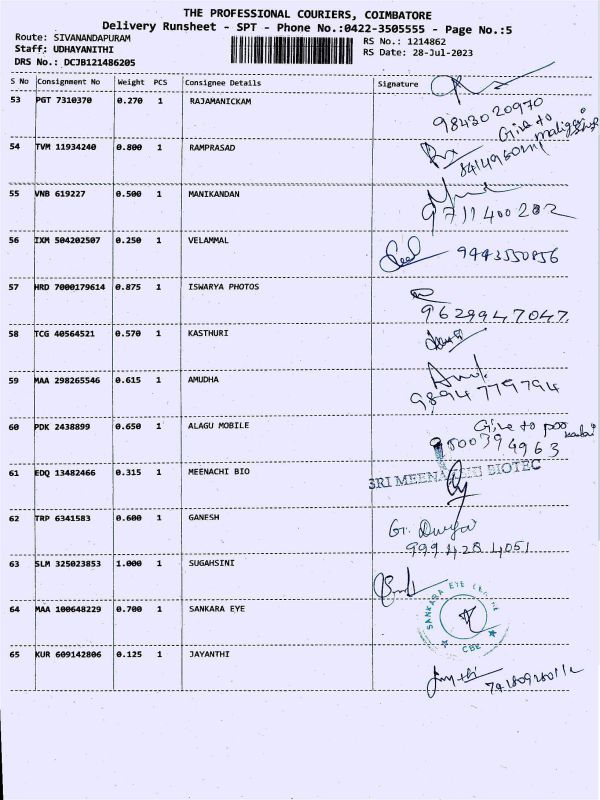 THE PROFESSIONAL COURIERS, COIMBATORE
Delivery Runsheet - SPT - Phone No.:0422-3505555 - Page No.:5
Route: SIVANANDAPURAM RS No.: 1214862
Staff: UDHAYANITHI RS Date: 28-Jul-2023
DRS No.: DCJB121486205
S No Consignment No Weight PCS Consignee Details Signature
53 PGT 7310370 0.270 1 RAJAMANICKAM
9843020970
Give to
54 TVM 11934240 0.800 1 RAMPRASAD
55 VNB 619227 0.500 1 MANIKANDAN
9711400282
56 IXM 504202507 0.250 1 VELAMMAL 9443550856
57 HRD 7000179614 0.875 1 ISWARYA PHOTOS
9629947047
58 TCG 40564521 0.570 1 KASTHURI
59 MAA 298265546 0.615 1 AMUDHA
9894779794
60 PDK 2438899 0.650 1 ALAGU MOBILE Give to poo
9500394963
61 EDQ 13482466 0.315 1 MEENACHI BIO SRI MEENAKSHI BIOTEC
62 TRP 6341583 0.600 1 GANESH G. Durga
999 428 4051
63 SLM 325023853 1.000 1 SUGAHSINI
64 MAA 100648229 0.700 1 SANKARA EYE SANKARA EYE CENTRE
CBE
65 KUR 609142806 0.125 1 JAYANTHI